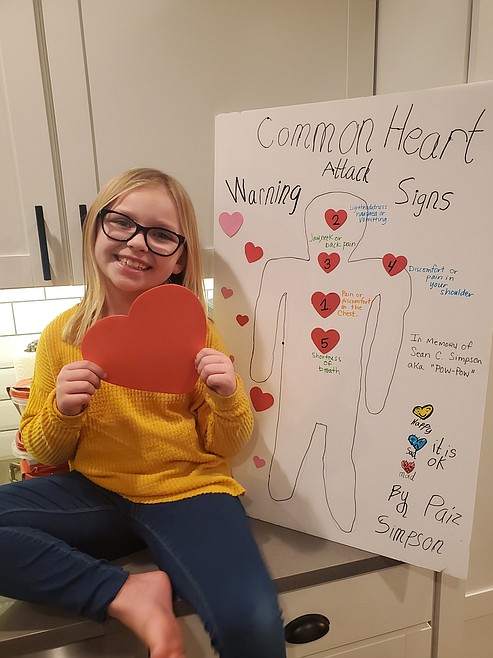 Common Heart
Attack
Warning Signs
2
Lightheadedness
nausea or
vomiting
Jaw, neck or
back pain
3
4
Discomfort or
pain in
your
shoulder
1
Pain or
discomfort
in the
chest.
5
Shortness
of
breath
In Memory of
Sean C. Simpson
aka "Pow-Pow"
Happy
Sad
mad
it is
ok
By Paiz
Simpson